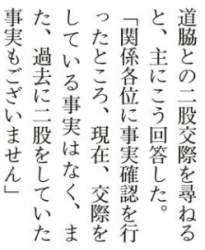 道脇との二股交際を尋ねる
と、主にこう回答した。
「関係各位に事実確認を行
ったところ、現在、交際を
している事実はなく、ま
た、過去に二股をしていた
事実もございません」